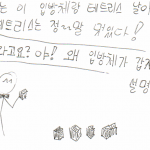 는 이 입방체랑 테트리스 놀이
테트리스는 정~말 멋있다!
라고요? 야! 왜 입방체가 갑
설명